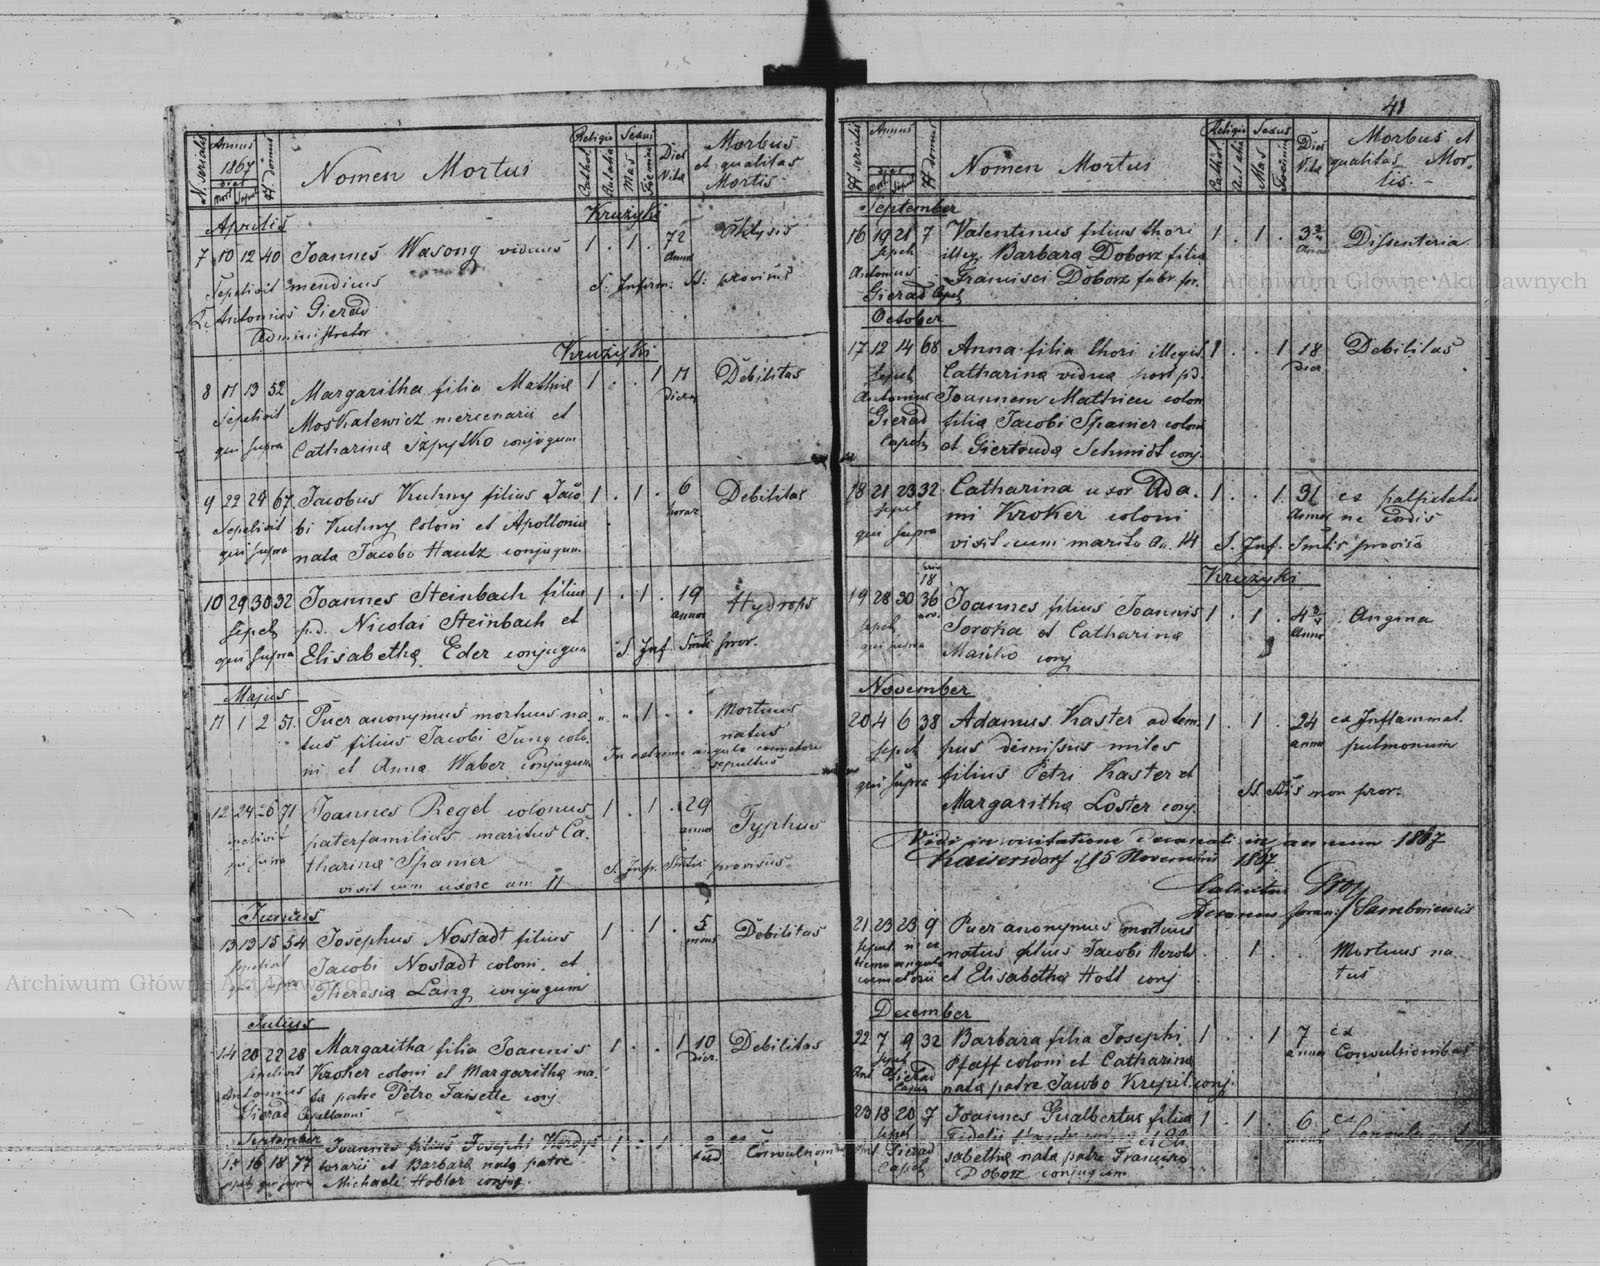 N. serialis
Annus
1867
Dies
Mort. Sepul.
N domus
Nomen Mortui
Religio
Cathol.
Aut alia
Sexus
Mas
Foemina
Dies
Vitæ
Morbus
et qualitas
Mortis
Aprilis
Krużyki
7 10 12 40 Joannes Wasong viduus 1 . 1 . 72 Phtysis
annor
Sepelivit mendicus S: Infirm: SS: provisus
Antonius Gierad
Administrator
Krużyki
8 11 13 52 Margaritha filia Mathiæ 1 . . 1 11 Debilitas
dierum
Sepelivit Moskalewicz mercenarii et
qui supra Catharinæ Szpytko conjugum
9 22 24 67 Jacobus Kuhny filius Jaco- 1 . 1 . 6 Debilitas
horar
Sepelivit bi Kuhny coloni et Apolloniæ
qui supra nata Jacobo Hautz conjugum
10 29 30 32 Joannes Steinbach filius 1 . 1 . 19 Hydrops
annor
sepel p.d. Nicolai Steinbach et
qui supra Elisabetha Eder conjugum S. Inf. Smtis prov.
Majus
11 1 2 51 Puer anonymus mortuus na- " " 1 " " Mortuus
tus filius Jacobi Jung colo- natus
ni et Anna Waber conjugum In extremo angulo cœmeterii
sepultus
12 24 26 71 Joannes Regel colonus 1 . 1 . 29 Typhus
annor
sepelivit paterfamilias maritus Ca-
qui supra tharina Spanier S. Infr. Smtis provisus
vixit cum uxore an: 11
Junius
13 13 15 54 Josephus Nostadt filius 1 . 1 . 5 Debilitas
mens
sepelivit Jacobi Nostadt coloni et
qui supra Theresia Lang conjugum
Julius
14 20 22 28 Margaritha filia Joannis 1 . . 1 10 Debilitas
dier.
sepelivit Kroker coloni et Margaritha na-
Antonius ta patre Petro Faisette conj.
Gierad Capellanus
September
15 16 18 77 Joannes filius Josephi 1 . 1 . ex
et Barbara nata patre
sepel qui supra Michaele Hobler conjug.
41
N serialis
Annus
Dies
Mort. Sepul.
N domus
Nomen Mortui
Religio
Cathol
Aut alia
Sexus
Mas
Foemina
Dies
Vitæ
Morbus et
qualitas Mor-
tis.
September
16 19 21 7 Valentinus filius thori 1 . 1 . Dissenteria
Sepel illeg. Barbara Doborz filia
Antonius Francisci Doborz fabr. fer.
Gierad Capel
October
17 12 14 68 Anna filia thori illegit 1 . . 1 18 Debilitas
dier.
Sepel Catharina vidua post pd.
Antonius Joannem Mathieu colon
Gierad filia Jacobi Spanier coloni
Capel et Giertruda Schmidt conj.
18 21 23 32 Catharina uxor Ada- 1 . . 1 ex palpitatio
annor
sepel mi Kroker coloni ne cordis
qui supra vixit cum marito an. 14 S. Inf. Smtis provisa
Krużyki
18
19 28 30 36 Joannes filius Joannis 1 . 1 . Angina
sepel Soroka et Catharina
qui supra conj
November
20 4 6 38 Adamus Kaster ad tem- 1 . 1 . 24 ex Inflammat.
annor
sepel pus dimissus miles pulmonum
qui supra filius Petri Kaster et
Margaritha Loster conj. SS. non prov.
Vidi in visitatione decanali in annum 1867
Kaisersdorf 15 Novembris 1867
Decanus Samboriensis
21 23 23 9 Puer anonymus mortuus
natus filius Jacobi Herold . . 1 . . Mortuus na-
cœmeterii et Elisabetha Holl conj tus
December
22 7 9 32 Barbara filia Josephi 1 . . 1 7 ex
annor
sepel Pfaff coloni et Catharina Convulsionibus
Ant. Gierad Capel nata patre Jacobo Krepil conj.
23 18 20 7 Joannes Gualbertus filius 1 . 1 . 6 ex
mens
sepel Fidelis et Eli-
Ant. Gierad sabetha nata patre Francisco
Capel Doborz conjugum
Archiwum Główne Akt Dawnych
Archiwum Główne Akt Dawnych